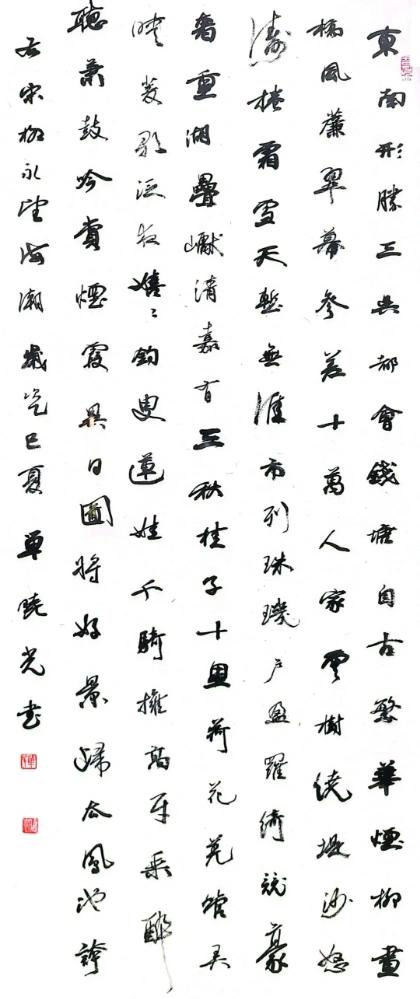 東南形勝三吳都會錢塘自古繁華煙柳畫
橋風簾翠幕參差十萬人家雲樹繞堤沙怒
濤捲霜雪天塹無涯市列珠璣戶盈羅綺競豪
奢重湖疊巘清嘉有三秋桂子十里荷花羌管弄
晴菱歌泛夜嬉嬉釣叟蓮娃千騎擁高牙乘醉
聽蕭鼓吟賞煙霞異日圖將好景歸去鳳池誇
右宋柳永望海潮歲乙巳夏單曉光書